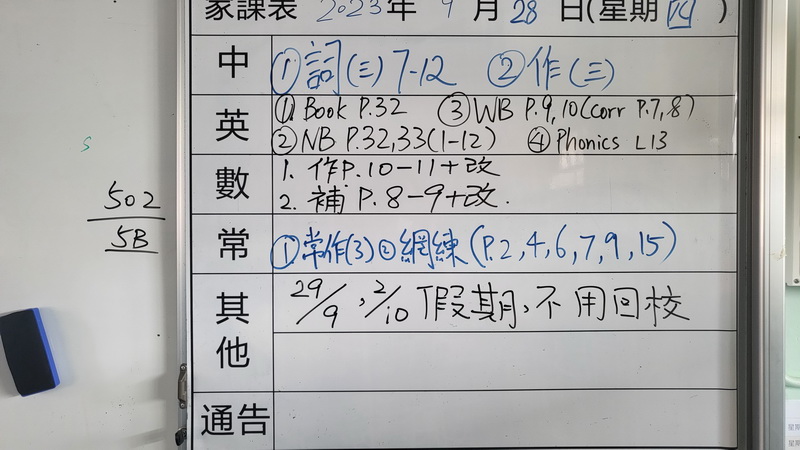 家課表 2023年 9月28日(星期四)
中 ①詞(三)7-12 ②作(三)
英 ①Book P.32 ③WB P.9,10(corr P.7,8)
②NB P.32,33(1-12) ④Phonics L13
數 1. 作P.10-11+改
2. 補P.8-9+改.
常 ①常作(3)②網練(P.2,4,6,7,9,15)
其他 29/9, 2/10 假期,不用回校
通告
S
502
5B